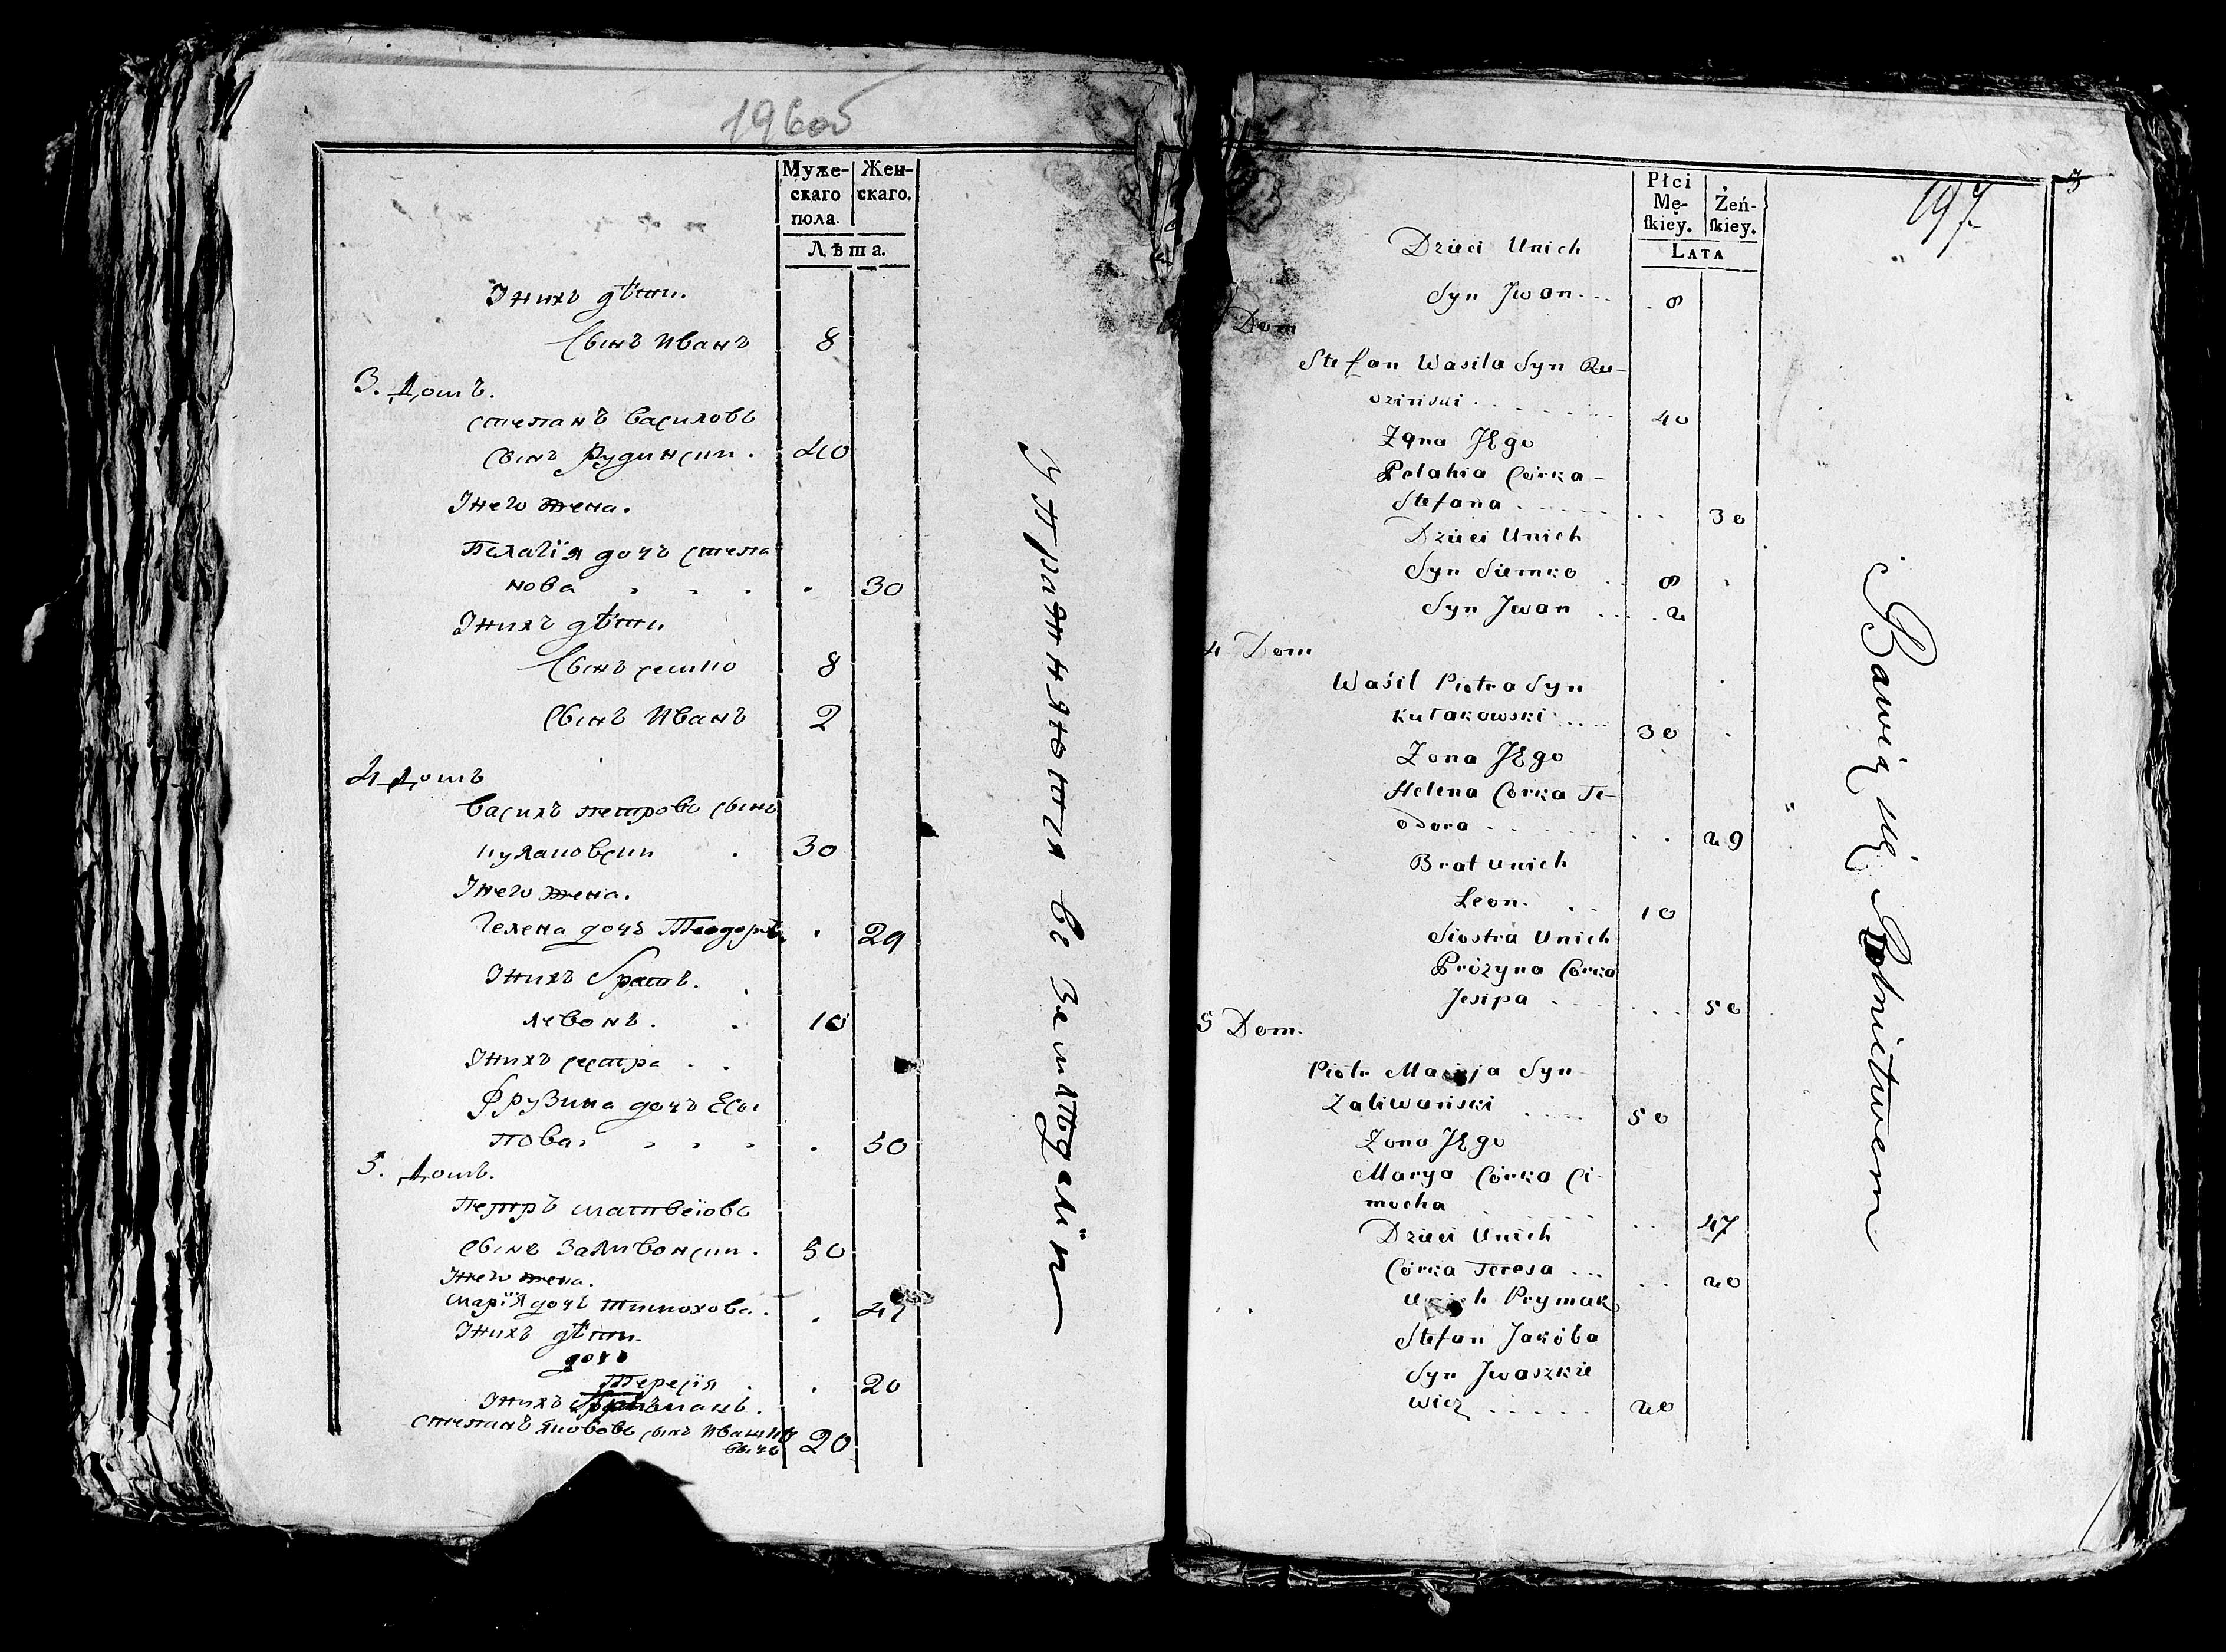 196 об
Муже-
скаго
пола.
Жен-
скаго.
Лѣта.
Унихъ дѣти.
Сынъ Иванъ 8
3. Домъ.
Степанъ Василовъ
Сынъ Рудински. 40
Унего жена.
Пелагія дочь Степа
нова 30
Унихъ дѣти
Сынъ Семко 8
Сынъ Иванъ 2
4 Домъ
Василь Петровъ Сынъ
Кулаковски 30
Унего жена.
Гелена дочь Теодоров. 29
Унихъ братъ.
Левонъ. 10
Унихъ сестра
Фрузина дочь Еси
пова 50
5. Домъ.
Петръ Матвеіовъ
Сынъ Заливонски. 50
Унего жена.
Марія дочь Тимохова. 47
Унихъ дѣти.
дочь
Тересія 20
Унихъ
Степанъ Яковов сынъ Ивашке
вичь 20
Упражняются въ земледелии
Płci
Mę-
skiey.
Żeń-
skiey.
LATA
197
Dzieci Unich
Syn Jwan 8
Dom
Stefan Wasila Syn Ru-
dziński 40
Żona Jego
Pelahia Córka
Stefana 30
Dzieci Unich
Syn Siemko 8
Syn Jwan 2
4 Dom
Waśil Piotra Syn
Kułakowski 30
Zona Jego
Helena Corka Te-
odora 29
Brat Unich
Leon. 10
Siostra Unich
Prózyna Córka
Jesipa 50
5 Dom.
Piotr Macieja Syn
Zaliwański 50
Zona Jego
Marya Córka Ci-
mocha 47
Dzieci Unich
Córka Teresa 20
Unich Prymak
Stefan Jakóba
Syn Jwaszkie
wicz 20
Bawią się Rolnictwem